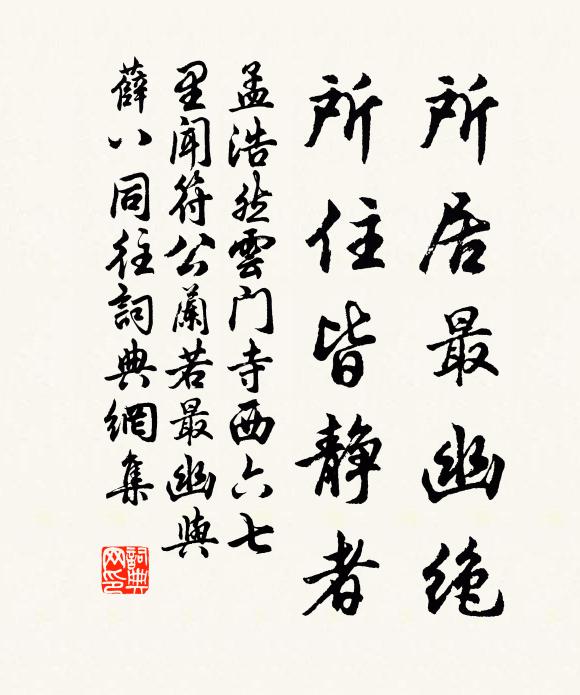 所居最幽绝
所住皆静者
孟浩然雲门寺西六七
里闻符公蘭若最幽與
薛八同往詞典網集
詞典网印